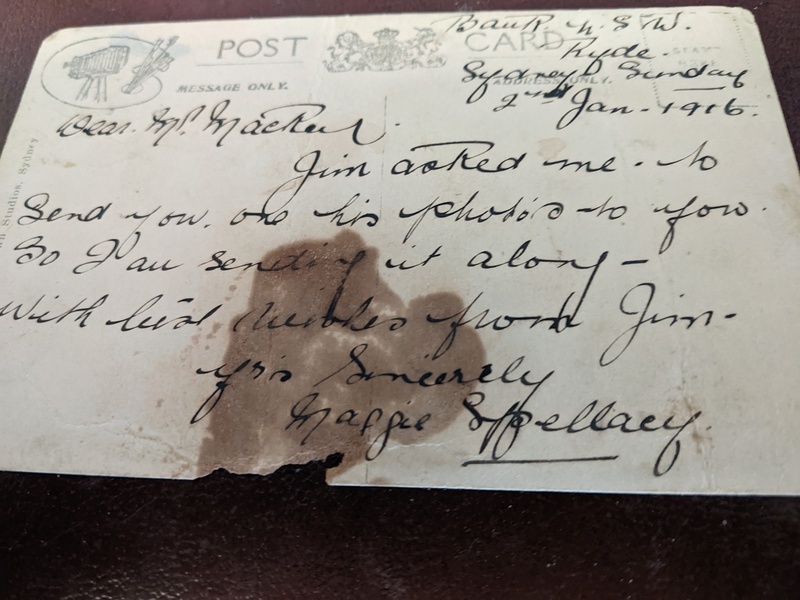 POST CARD
MESSAGE ONLY.
ADDRESS ONLY.
Studios, Sydney
Bank N.S.W.
Ryde.
Sydney Sunday
2nd Jan. 1916.
Dear Mr.
Jim asked me to
Send you. one his photo's to you.
So I au sending it along —
With best wishes from Jim -
Yrs Sincerely
Maggie Spellacy.